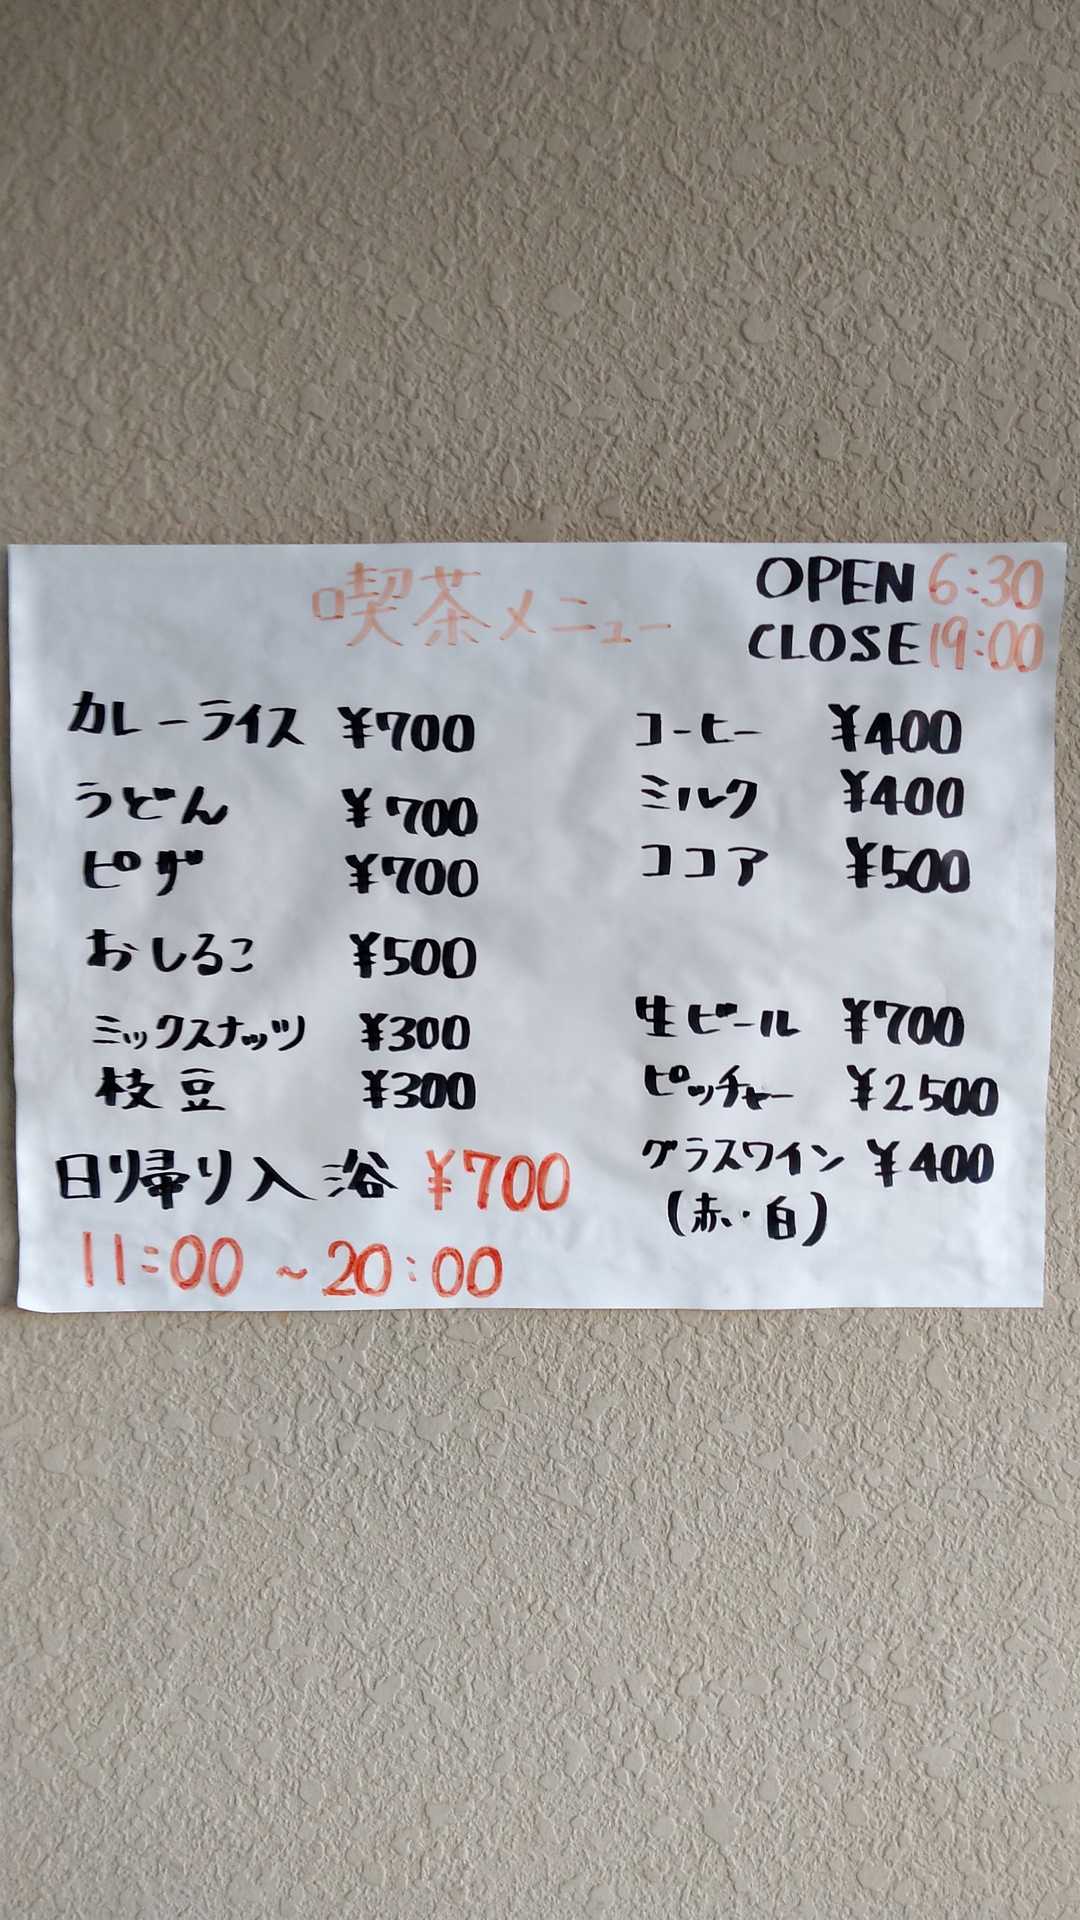 喫茶メニュー
OPEN 6:30
CLOSE 19:00
カレーライス ¥700
うどん ¥700
ピザ ¥700
おしるこ ¥500
ミックスナッツ ¥300
枝豆 ¥300
日帰り入浴 ¥700
11:00 ~ 20:00
コーヒー ¥400
ミルク ¥400
ココア ¥500
生ビール ¥700
ピッチャー ¥2500
グラスワイン ¥400
(赤・白)